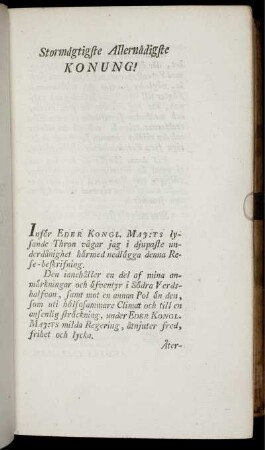 Stormägtigste Allernådigste
KONUNG!
Inför EDER KONGL. MAJ:TS ly-
sande Thron vågar jag i djupaste un-
derdånighet härmed nedlägga denna Re-
se-beskrifning.
Den innehåller en del af mina an-
märkningar och äfventyr i Södra Verds-
halfvan, samt mot en annan Pol än den,
som uti hälsosammare Climat och till en
ansenlig sträckning, under EDER KONGL.
MAJ:TS milda Regering, åtnjuter fred,
frihet och lycka.
Åter-